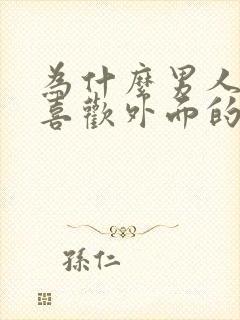 為什麼男人
喜歡外面的
孫仁